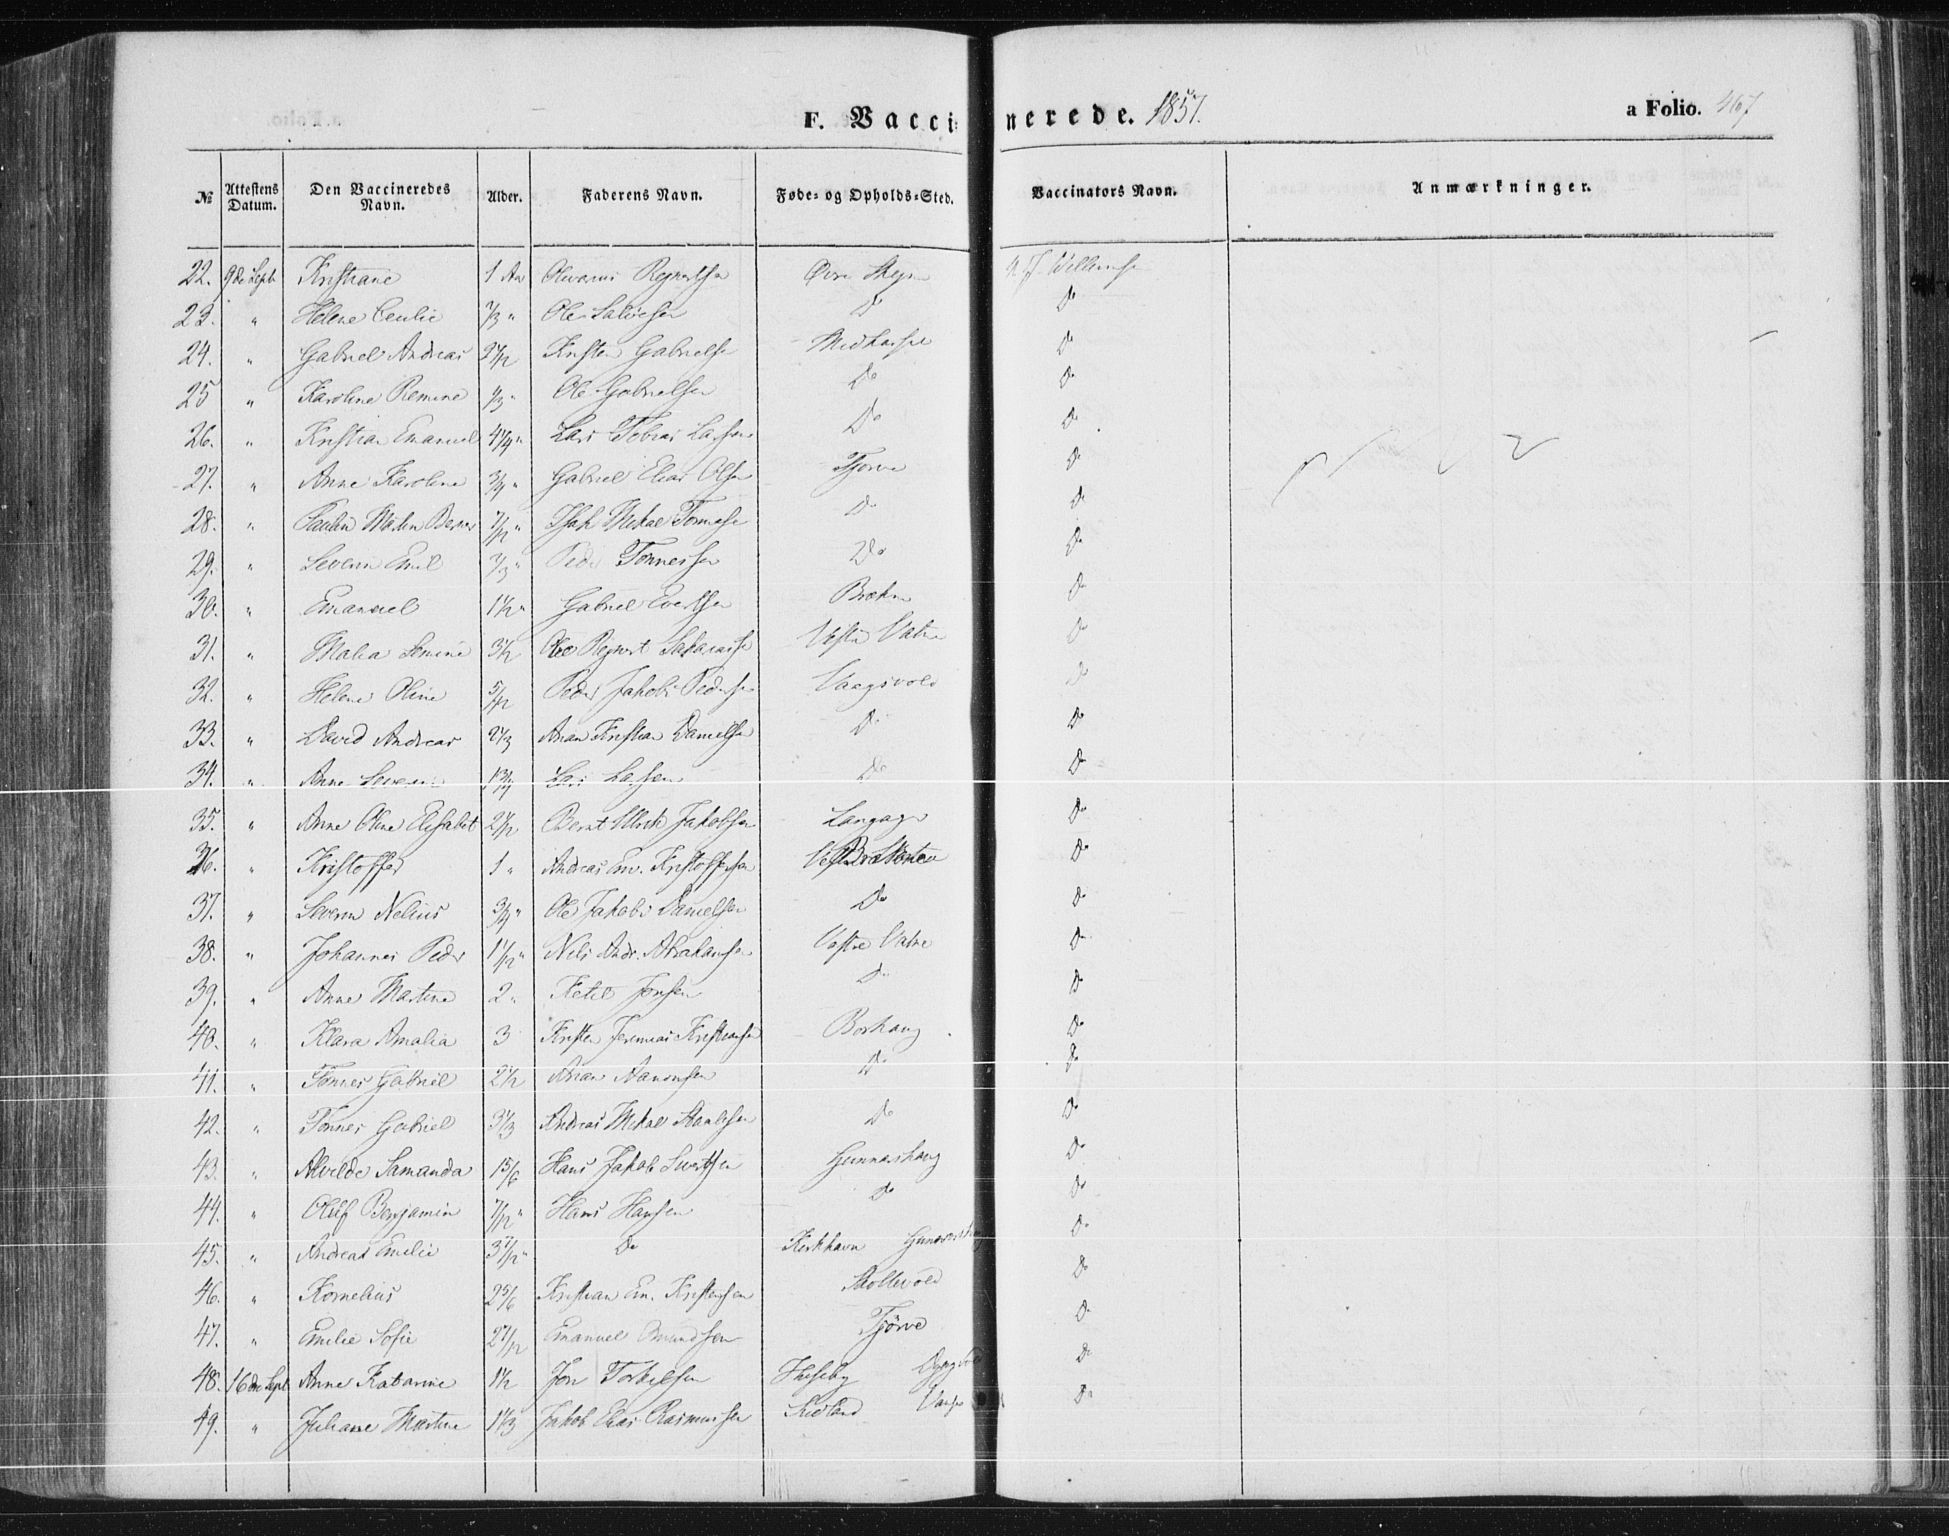 F. Vaccinerede. 1857.
a Folio. 467
№ Attestens Datum. Den Vaccineredes Navn. Alder. Faderens Navn. Føde- og Opholds-Sted. Vaccinators Navn. Anmærkninger.
22. 9de Sept. Kristiane 1 Olevarius Do
23. " Helene Cecilie " Ole Salvesen Do Do
24. " Gabriel Andreas 2 1/2 Kristen Gabrielsen Midhassel Do
25 " Karoline Remine " Ole Gabrielsen Do Do
26. " Kristian Emanuel 4 1/4 " Lars Tobias Larsen Do Do
27. " Anne Karoline 3/4 " Gabriel Elias Olsen Tjorve Do
28. " 7/12 " Do Do
29. " Severin Emil " Peder Tønnessen Do Do
30. " Emanuel 1 1/2 " Gabriel Evertsen Brekne Do
31. " Malia Semine 3 1/2 Ole Regnert Sakariasen Vestre Vatne Do
32. " Helene Oline 5/12 Peder Jakob Pedersen Vaagsvold Do
33. " David Andreas 2 1/3 Anan Kristian Danielsen Do Do
34. " Anne Severine 1 3/4 Lars Larsen Do Do
35. " Anne Oline Elisabet 2 1/2 Bernt Ulrik Jakobsen Langage Do
36. " Kristoffer 1 " Andreas Em. Kristoffersen Do
37. " Severin Nelius 3/4 " Ole Jakob Danielsen Do Do
38. " Johannes Peder 1 1/12 " Nels Andr. Abrahamsen Vestre Vatne Do
39. " Anne Martine 2 " Ketil Jonsen Do Do
40. " Klara Amalia 3 Kristen Jeremias Kristiansen Borhaug Do
41. " Tønnes Gabriel 2 1/2 Anan Aanonsen Do Do
42. " Tønnes Gabriel 3 1/3 Andreas Mikal Do Do
43. " Alvilde Samanda 1 5/6 Hans Jakob Sivertsen Gunnarshaug Do
44. " Oluf Benjamin 7/12 " Hans Hansen Do Do
45. " Andrea Emilie 3 7/12 " Do Kirkhavn Gunnarshaug Do
46. " Kornelius 2 5/6 Kristian Em. Kristensen Skollevold Do
47. " Emilie Sofie 2 7/12 Emanuel Omundsen Tjörve Do
48. 16de Sept Anne Katarine 1 1/2 Jon Torkelsen Huseby Do
49. " Juliane Martine 1 1/3 Jakob Elias Rasmussen Vanse Do